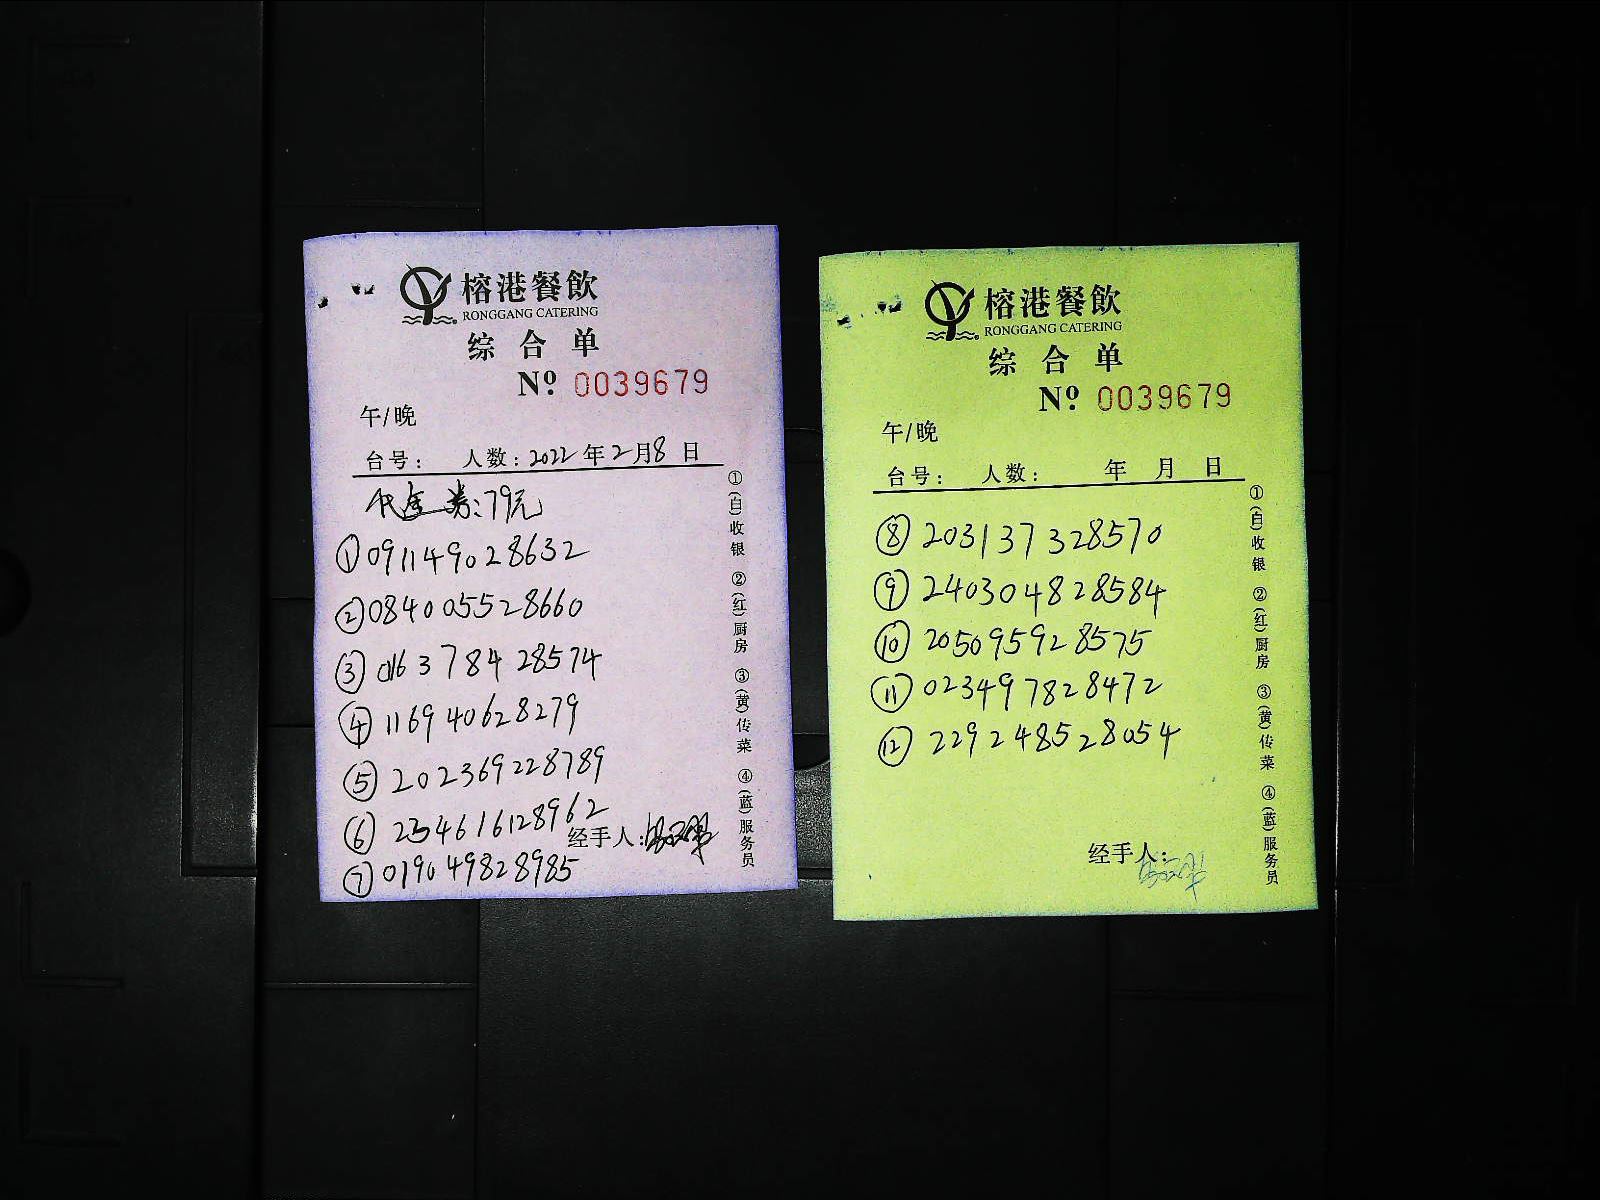 榕港餐飲
RONGGANG CATERING
综合单
Nº 0039679
午/晚
台号: 人数: 2022年2月8日
代金券:79元
①091149028632
②084005528660
③016378428574
④116940628279
⑤202369228789
⑥234616128962
经手人:
⑦019049828985
①(白)收银 ②(红)厨房 ③(黄)传菜 ④(蓝)服务员
榕港餐飲
RONGGANG CATERING
综合单
Nº 0039679
午/晚
台号: 人数: 年 月 日
⑧203137328570
⑨240304828584
⑩205095928575
⑪023497828472
⑫229248528054
经手人:
①(白)收银 ②(红)厨房 ③(黄)传菜 ④(蓝)服务员